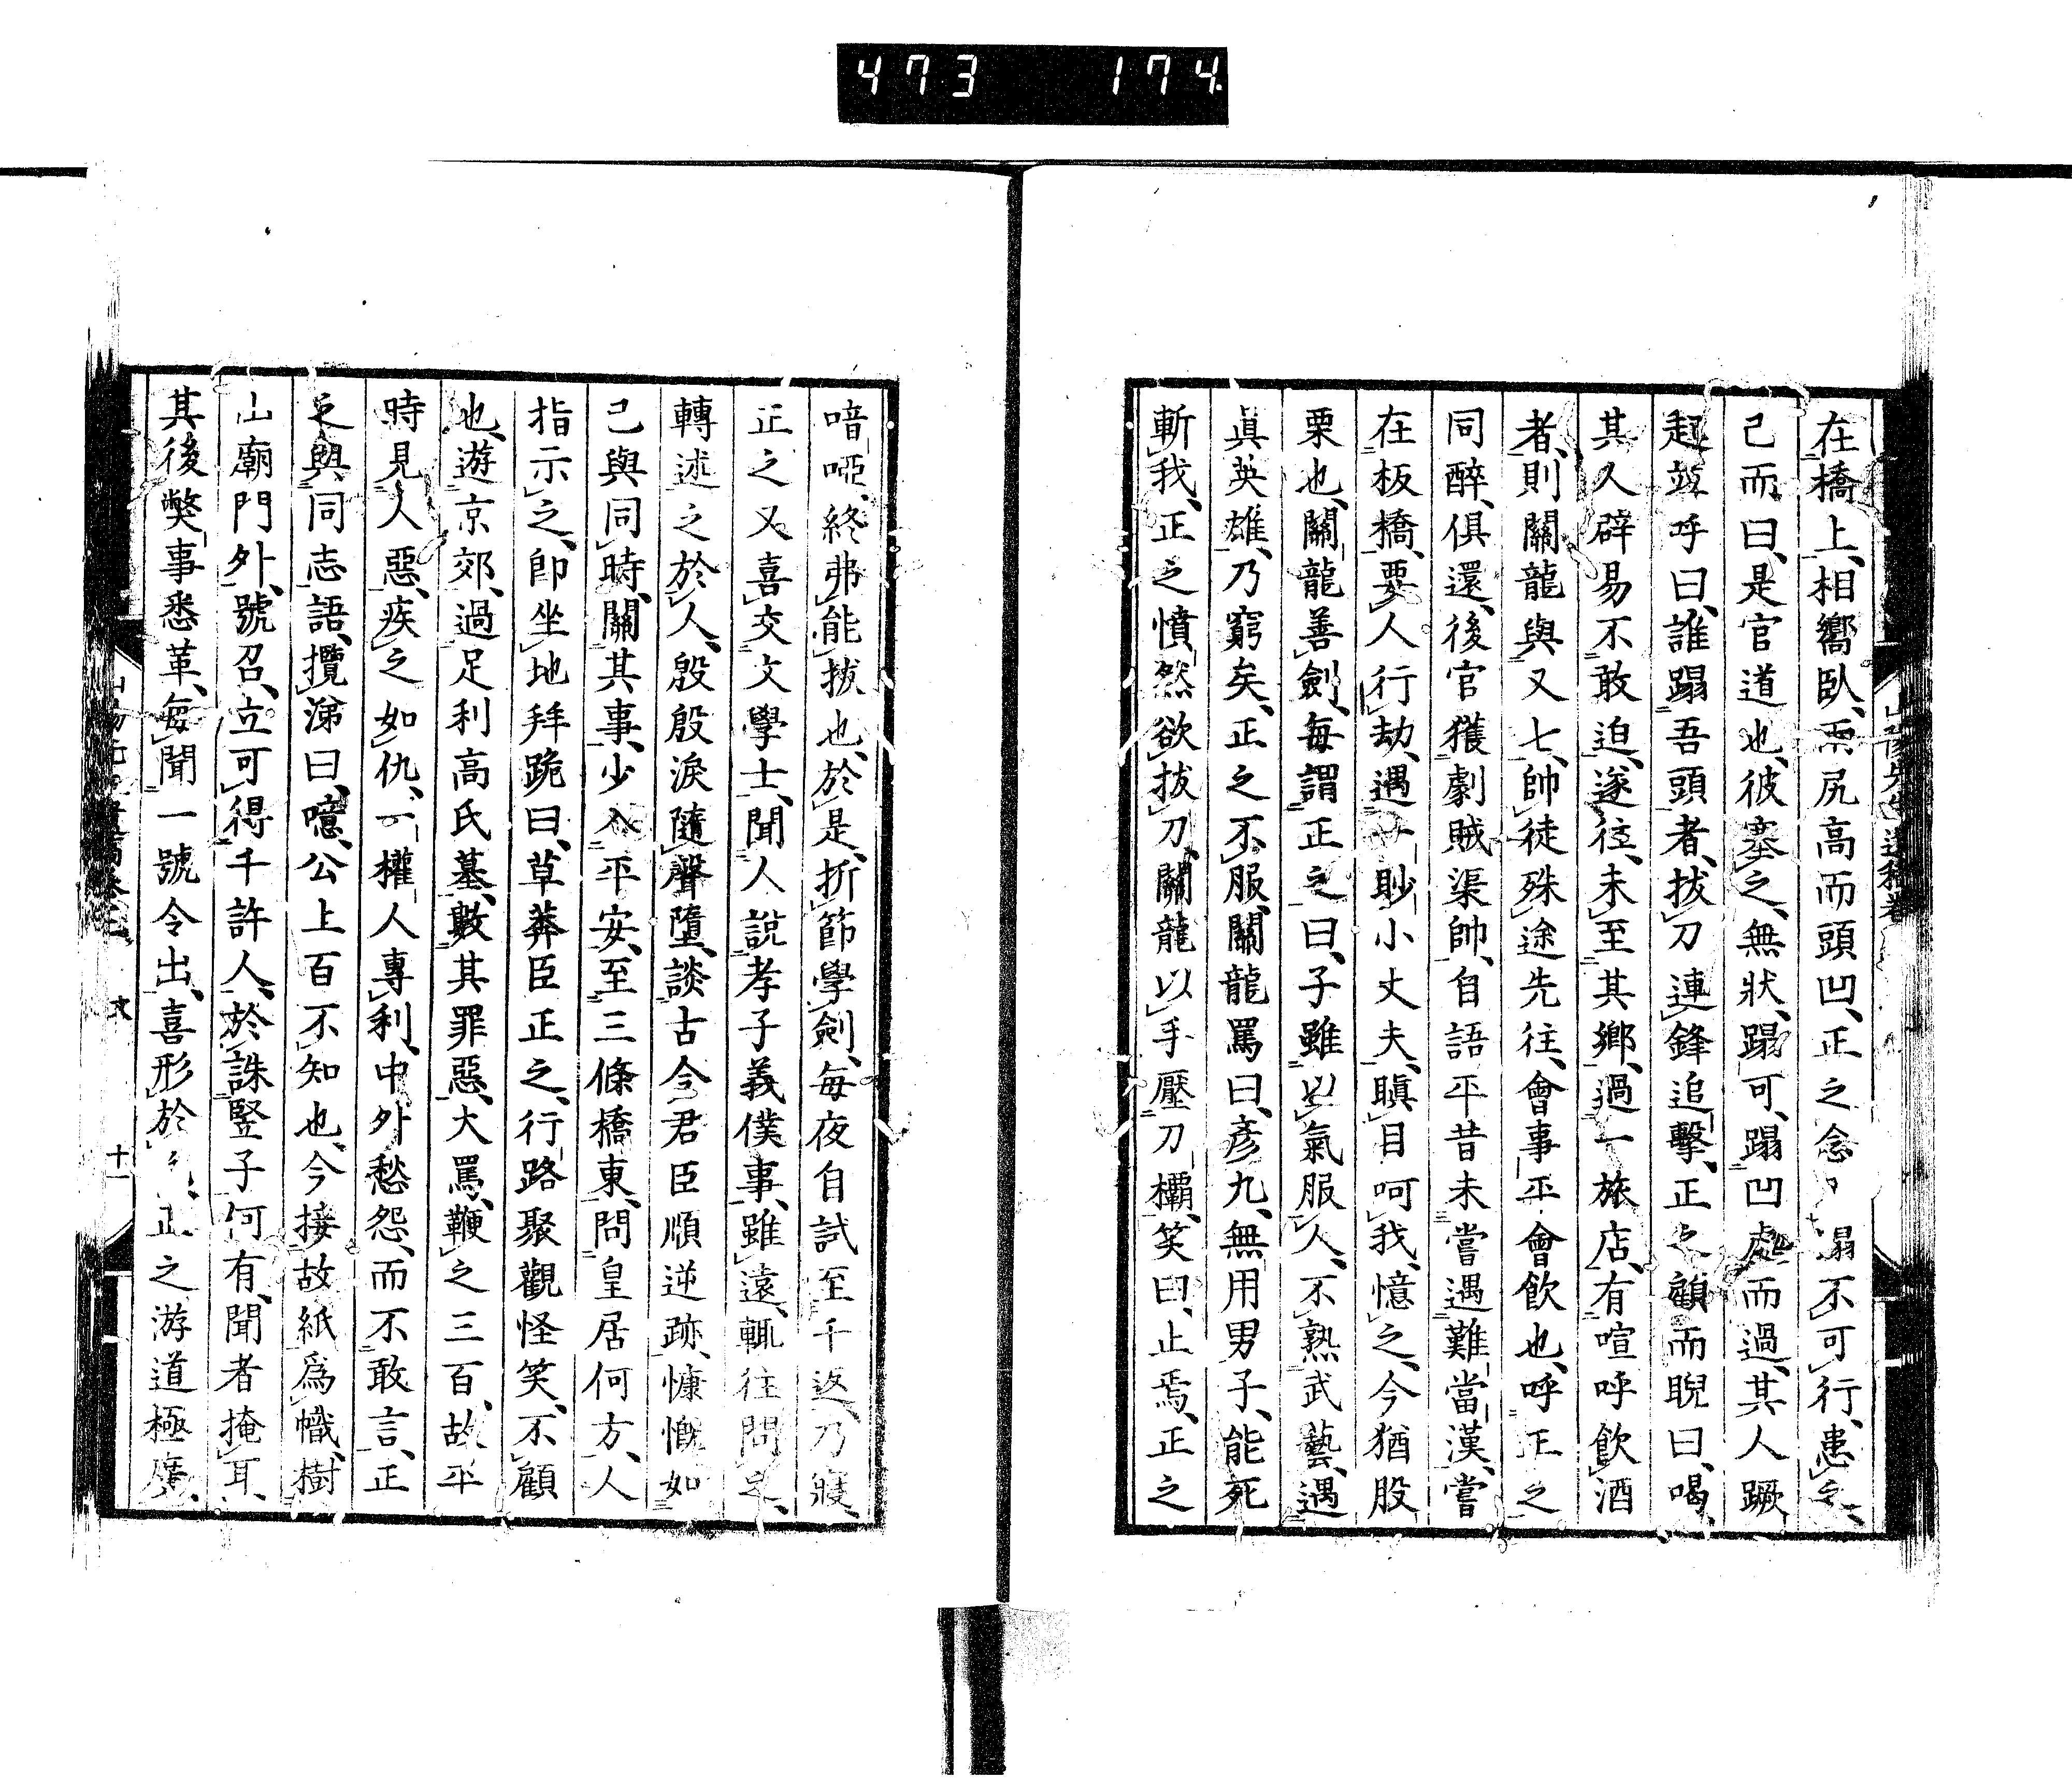 473 174
在橋上、相嚮臥、兩尻高而頭凹、正之念不可行、患之、
己而曰、是官道也、彼塞之、無狀、蹋可、蹋凹處而過、其人蹶
起竝呼曰、誰蹋吾頭者、拔刀連鋒追擊、正之顧而睨曰、喝、
其人辟易不敢迫、遂往、未至其鄉、過一旅店、有喧呼飲酒
者、則關龍與又七、帥徒殊途先往、會事平會飲也、呼正之
同醉、俱還、後官獲劇賊渠帥、自語平昔未嘗遇難當漢、嘗
在板橋、要人行劫、遇一眇小丈夫、瞋目呵我、憶之、今猶股
栗也、關龍善劍、每謂正之曰、子雖以氣服人、不熟武藝、遇
眞英雄、乃窮矣、正之不服、關龍罵曰、彥九、無用男子、能死
斬我、正之憤然欲拔刀、關龍以手壓刀欛、笑曰、止焉、正之
喑啞、終弗能拔也、於是、折節學劍、每夜自試至千返、乃寢、
正之又喜交文學士、聞人說孝子義僕事、雖遠、輒往問之、
轉述之於人、殷殷淚隨聲墮、談古今君臣順逆跡、慷慨如
己與同時、關其事、少入平安、至三條橋東、問皇居何方、人
指示之、卽坐地拜跪曰、草莽臣正之、行路聚觀怪笑、不顧
也、遊京郊、過足利高氏墓、數其罪惡、大罵、鞭之三百、故平
時見人惡、疾之如仇、一權人專利、中外愁怨、而不敢言、正
之與同志語、攬涕曰、噫、公上百不知也、今接故紙爲幟、樹
山廟門外、號召、立可得千許人、於誅豎子何有、聞者掩耳、
其後弊事悉革、每聞一號令出、喜形於正之游道極廣、
十一